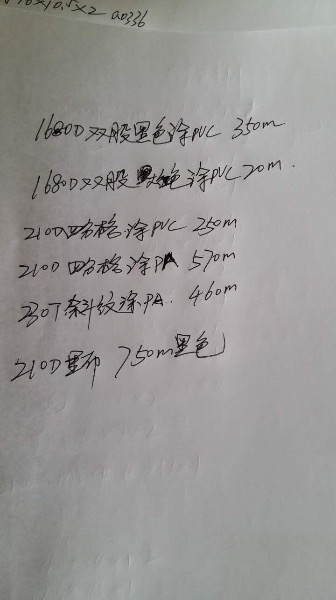 ×10.5×2 00336
1680D双股黑色涂PVC 350m
1680D双股 色涂PVC 20m.
210D四方格涂PVC 250m
210D四方格涂PA 570m
230T斜纹涂PA. 460m
210D里布 750m黑色